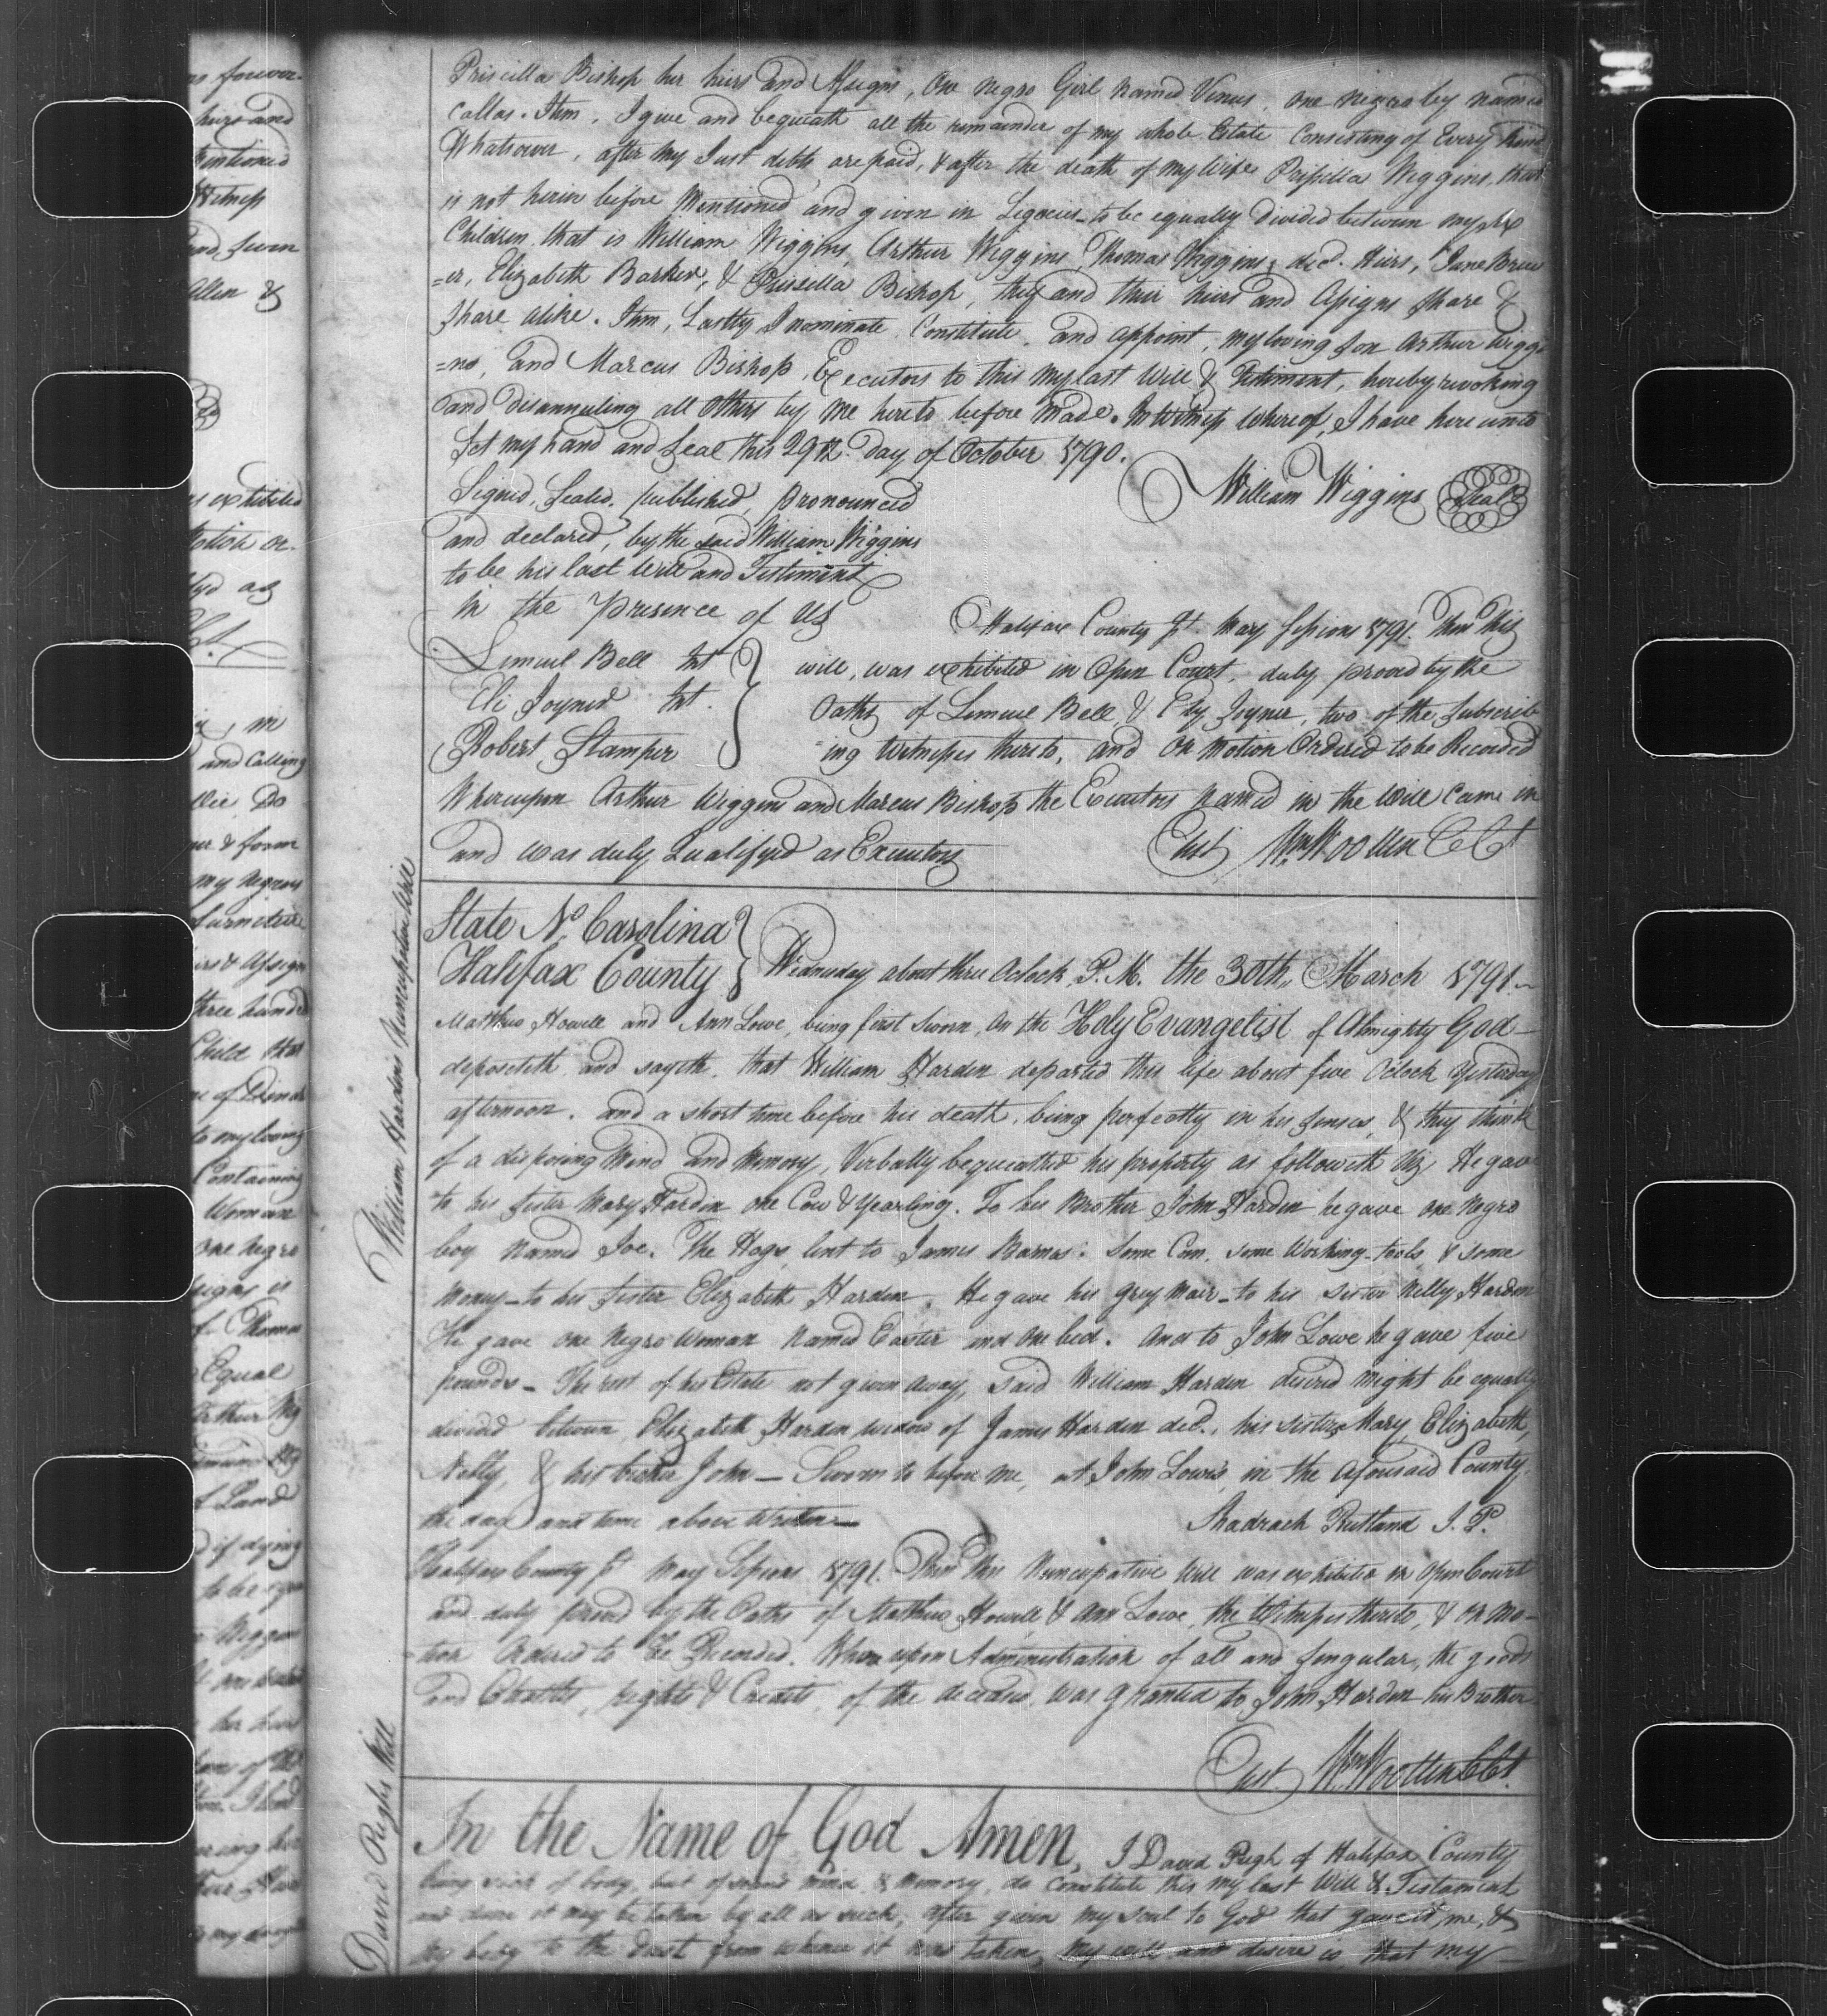 Priscilla Bishop her heirs and Assigns, One negro Girl named Venus, one negro by named
Callas. Itim, I give and bequeath all the remainder of my whole Estate Consisting of Every kind
Whatsoever, after my Just debts are paid, & after the death of my Wife Prissilla Wiggins, that
is not herin before Mentioned, and given in Legecies to be equally Divided between my six
Children, that is William Wiggins, Arthur Wiggins, Thomas Wiggins, decd. Heirs, Jane Brew
=er, Elizabeth Barker, & Priscilla Bishop, they and their heirs and Assigns Share &
Share alike. Itim, Lastly I nominate Constitute, and appoint, my loving Son Arthur Wiggi
=ns, and Marcus Bishop, Executors to this my last Will & Testiment, hereby revoking
and disannuling all Others by me hereto before made. In Witness whereof, I have here unto
Set my hand and Seal this 29th. Day of October 1790.
William Wiggins Seal
Signed, Sealed, published, pronounced
and declared, by the said William Wiggins
to be his last Will and Testiment
in the presence of Us
Lemuel Bell Jut
Eli Joyner Jut.
Robert Stamper
Halifax County Ss. May Sessions 1791. Then this
will, was exhibited in Open Court, duly proved by the
Oaths of Lemuel Bell & Ely Joyner, two of the Subscrib
ing Witnesses thereto, and On motion Ordered to be Recorded
Whereupon Arthur Wiggins and Marcus Bishop the Executors named in the Will Came in
and was duly Qualifyed as Executors
Test Wm Wootten CCt
William Hardens Nuncupative Will
State No. Carolina
Halifax County
Wednesday about three Oclock, P.M. the 30th,, March 1791.
Mathew Howell and Ann Lowe, being first Sworn, On the Holy Evangelist of Almighty God
deposeteth and sayeth, that William Harden departed this life about five Oclock Yesterday
afternoon, and a short time before his death, being perfectly in his senses, & they think
of a disposing Mind and Memory, Verbally bequeathed his property as followeth Viz. He gave
to his Sister Mary Harden one Cow & Yearling. To his Brother John Harden he gave one Negro
boy named Joe. The Hogs lent to James Barnes: Some Corn, some Working tools, & some
Money to his Sister Elizabeth Harden. He gave his Grey Mair to his Sister Nelly Harden
He gave one Negro Woman Named Easter and one bed. And to John Lowe he gave five
pounds - The rest of his Estate not given away, said William Harden desired might be equally
divided between Elizabeth Harden widow of James Harden decd., his Sisters Mary, Elizabeth,
Nelly, & his brother John - Sworn to before me, at John Lowes, in the aforesaid County,
the day and time above Written
Shadrach Rutland J. P.
Halifax County Ss May Sessions 1791. Then this Nuncupative Will was exhibited in Open Court
and duly proved by the Oaths of Mathew Howell & Ann Lowe, the Witnesses thereto, & on mo-
-tion Ordered to be Recorded. Whereupon Administration of all and Singular, the goods
and Chattles, rights & Credits, of the deceased, was granted to John Harden his Brother
Test. Wm Wootten CCt.
David Pughs Will
In the Name of God Amen, I David Pugh of Halifax County
being sick of body, but of sound mind & memory, do Constitute this my last Will & Testament
and desire it may be taken by all as such, after given my soul to God that gave it, me, &
my body to the dust from whence it was taken, my will and desire is, that my